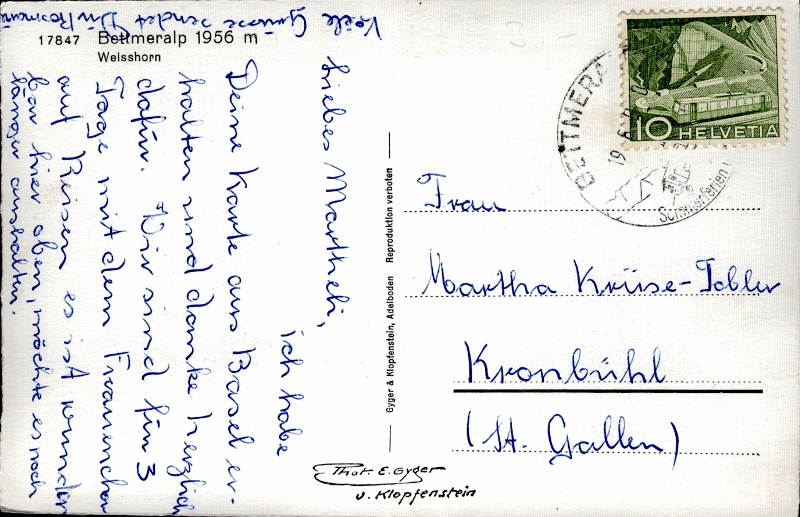 17847 Bettmeralp 1956 m
Weisshorn
Liebes Martheli,
ich habe
Deine Karte aus Basel er-
halten und danke herzlich
dafür. Wir sind für 3
Tage mit dem Frauenchor
auf Reisen es ist wunder
bar hier oben, möchte es noch
länger aushalten.
Viele Grüsse sendet Dir Rosmarie
Gyger & Klopfenstein, Adelboden Reproduktion verboten
Phot. E. Gyger
u. Klopfenstein
10 HELVETIA
BETTMERA
Sommerferien
Frau
Martha Krüse-Tobler
Kronbühl
(St. Gallen)